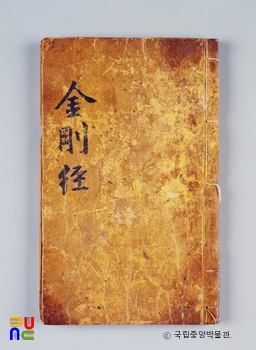 金剛徑
PUNC
© 국립중앙박물관.